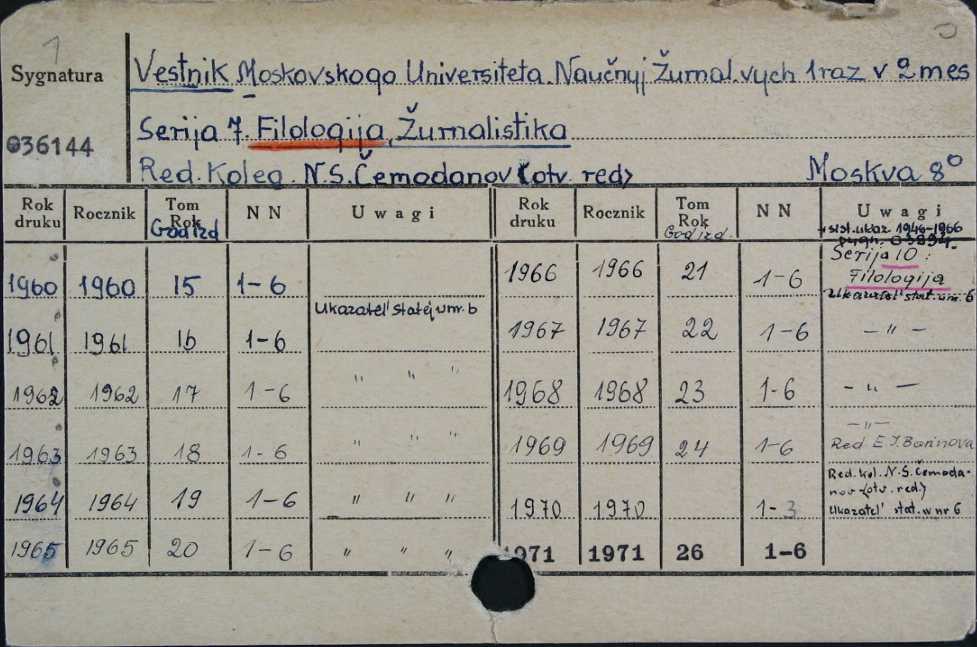 1
Sygnatura
036144
Vestnik Moskovskogo Universiteta. Naučnyj Žurnal. vych 1 raz v 2 mes
Serija 7. Filologija, Žurnalistika
Red. Koleg. N.S. Čemodanov (otv. red) Moskva 8°
Rok druku Rocznik Tom Rok God izd N N Uwagi Rok druku Rocznik Tom Rok God izd. N N Uwagi
+ sist. ukaz. 1946-1966
1960 1960 15 1-6 1966 1966 21 1-6 Serija 10: Filologija
Ukazatel' statej w nr. 6 Ukazatel' stat. w nr. 6
1961 1961 16 1-6 1967 1967 22 1-6 — " —
1962 1962 17 1-6 " " " 1968 1968 23 1-6 — " —
— " —
1963 1963 18 1-6 " " " 1969 1969 24 1-6 Red E.I. Barinova
Red. kol. N.S. Čemoda-
nov (otv. red)
1964 1964 19 1-6 " " " 1970 1970 1-3 Ukazatel' stat. w nr 6
1965 1965 20 1-6 " " " 1971 1971 26 1-6